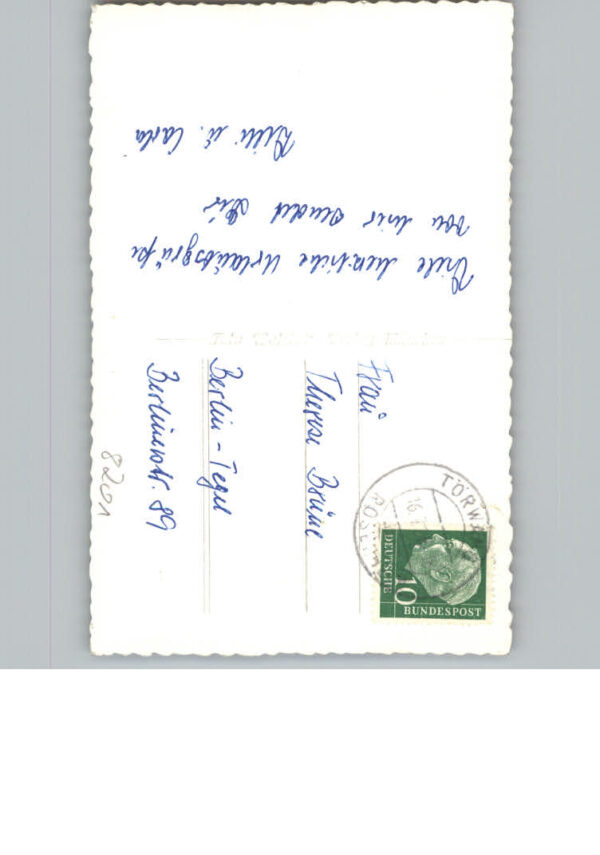 Viele herzliche Urlaubsgrüße
von hier sendet Dir
Willi u. Carla
Frau
Therese Brüne
Berlin-Tegel
Berlinerstr. 89
8201
TÖRWA
ROSE
16.
DEUTSCHE
BUNDESPOST
10